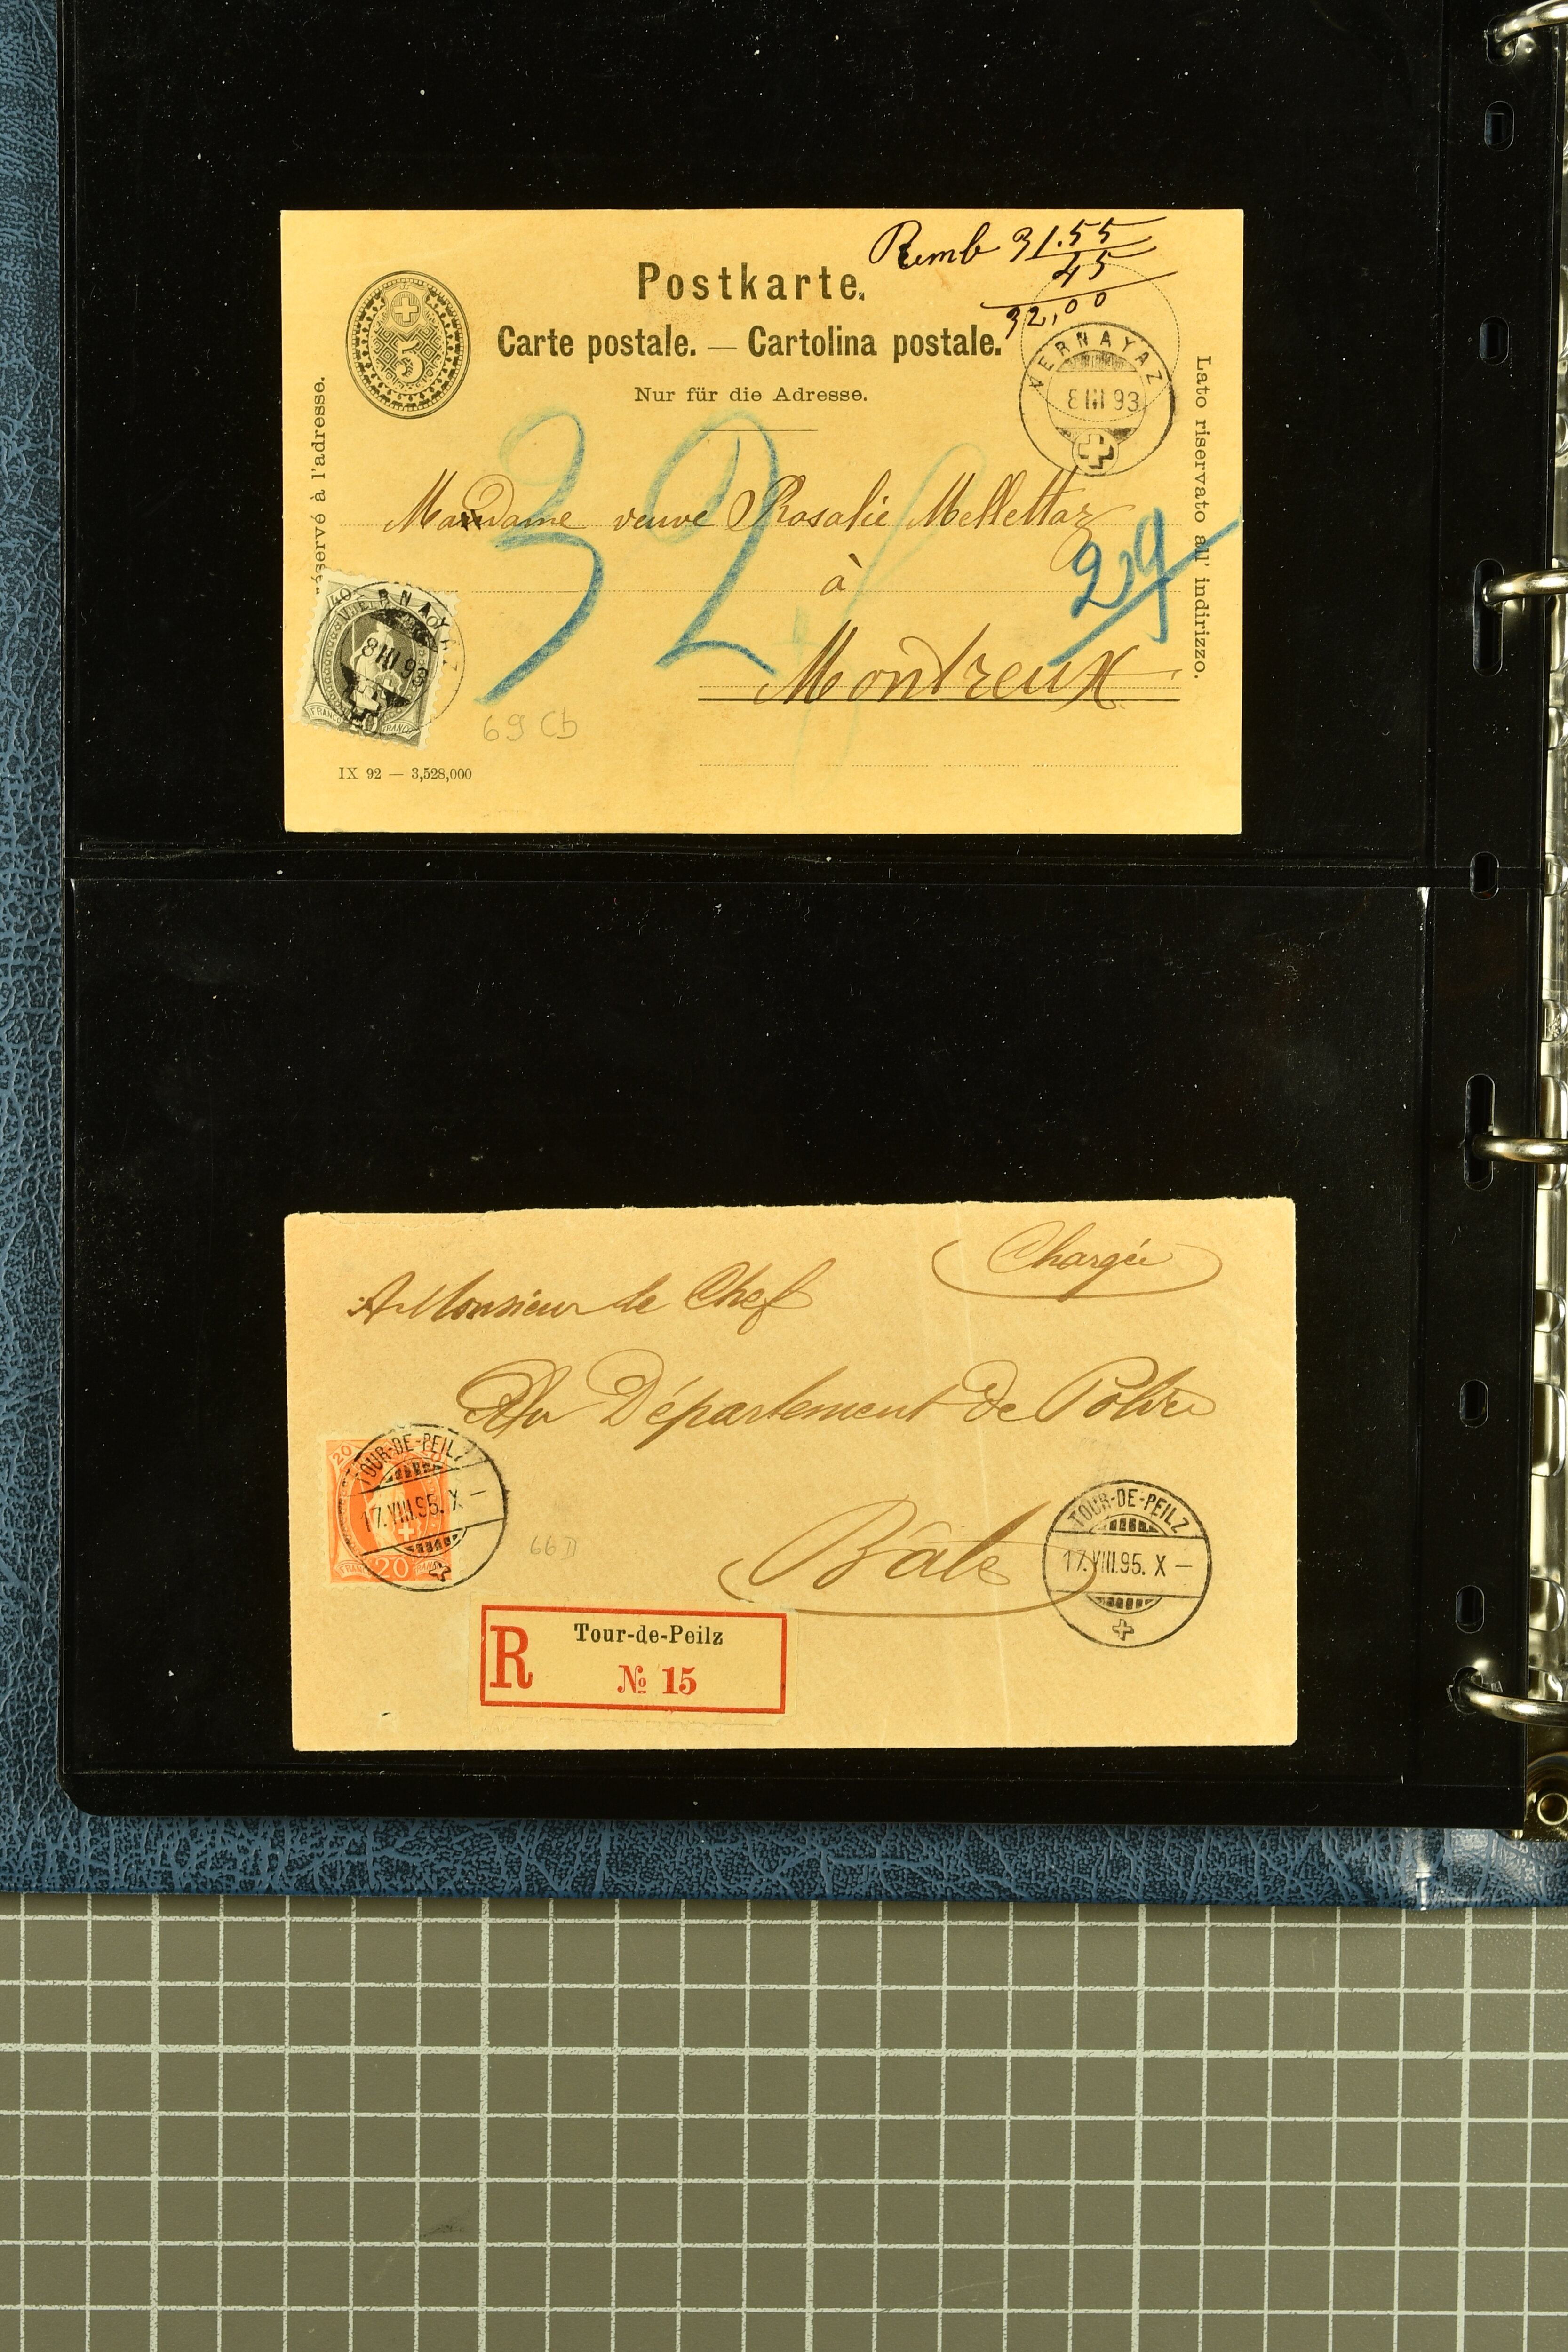 Remb 31.55
45
32,00
Postkarte.
Carte postale. — Cartolina postale.
Nur für die Adresse.
5
éservé à l'adresse.
Lato riservato all' indirizzo.
VERNAYAZ
8 III 93
Madame veuve Rosalie Mellettaz
à
Montreux
32
29
40
VERNAYAZ
8 III 93
FRANCO
69 Cb
IX 92 — 3,528,000
Chargée
A Monsieur le Chef
Du Département de Police
Bâle
20
TOUR-DE-PEILZ
17.VIII.95. X –
FRANCO 20
66 D
TOUR-DE-PEILZ
17.VIII.95. X –
R Tour-de-Peilz
№ 15